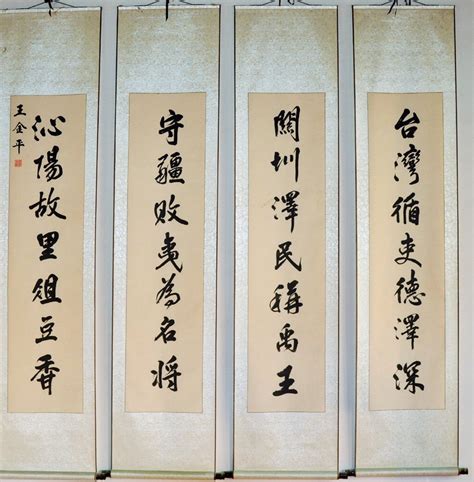 台灣循吏德澤深
闢圳澤民稱禹王
守疆敗夷為名將
沁陽故里俎豆香
王金平